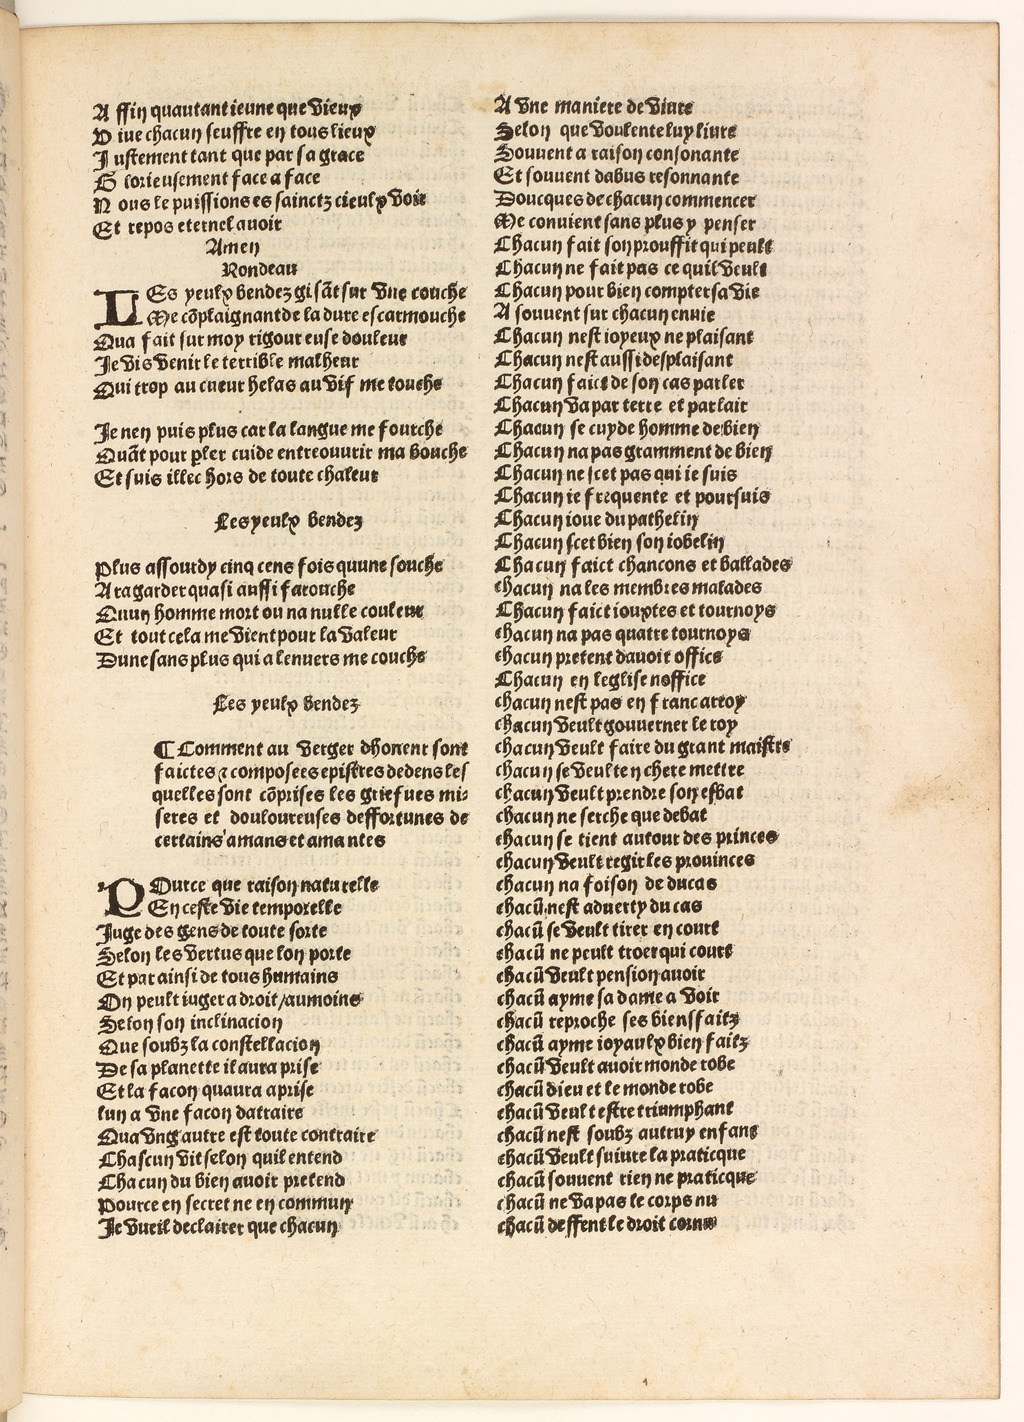 A ffin quautant ieune que vieux
V iue chacun seuffre en tous lieux
J ustement tant que par sa grace
G lorieusement face a face
N ous le puissions es sainctz cieulx voir
Et repos eternel auoir
Amen
Rondeau
LEs yeulx bendez gisãt sur vne couche
Me cõplaignant de la dure escarmouche
Qua fait sur moy rigour euse douleur
Je vis venir le terrible malheur
Qui trop au cueur helas au vif me touche
Je nen puis plus car la langue me fourche
Quãt pour ꝑler cuide entreouurir ma bouche
Et suis illec hors de toute chaleur
Les yeulx bendez
Plus assourdy cinq cens fois quune souche
A ragarder quasi aussi farouche
Quun homme mort ou na nulle couleur
Et tout cela me vient pour la valeur
Dune sans plus qui a lenuers me couche
Les yeulx bendez
¶ Comment au verger dhonent sont
faictes ⁊ composees epistres dedens les
quelles sont cõprises les griefues mi⸗
seres et douloureuses deffortunes de
certains amans et amantes
POurce que raison naturelle
En ceste vie temporelle
Juge des gens de toute sorte
Selon les vertus que lon porte
Et par ainsi de tous humains
On peult iuger a droit/aumoins
Selon son inclinacion
Que soubz la constellacion
De sa planette il aura prise
Et la facon quaura aprise
lun a vne facon dattraire
Qua vng autre est toute contraire
Chascun vit selon quil entend
Chacun du bien auoir pretend
Pource en secret ne en commun
Je vueil declairer que chacun
A vne maniere de viure
Selon que voulente luy liure
Souuent a raison consonante
Et souuent dabus resonnante
Doucques de chacun commencer
Me conuient sans plus y penser
Chacun fait son prouffit qui peult
Chacun ne fait pas ce quil veult
Chacun pour bien compter sa vie
A souuent sur chacun enuie
Chacun nest ioyeux ne plaisant
Chacun nest aussi desplaisant
Chacun faict de son cas parler
Chacun va par terre et par lair
Chacun se cuyde homme de bien
Chacun na pas gramment de bien
Chacun ne scet pas qui ie suis
Chacun ie frequente et poursuis
Chacun ioue du pathelin
Chacun scet bien son iobelin
Chacun faict chancons et ballades
chacun na les membres malades
Chacun faict iouxtes et tournoys
chacun na pas quatre tournoys
chacun pretent dauoir office
Chacun en leglise noffice
chacun nest pas en franc arroy
chacun veult gouuerner le roy
chacun veult faire du grant maistre
chacun se veult en chere mettre
chacun veult prendre son esbat
chacun ne serche que debat
chacun se tient autour des princes
chacun veult regir les prouinces
chacun na foison de ducas
chacũ nest aduerty du cas
chacũ se veult tirer en court
chacũ ne peult troer qui court
chacũ veult pension auoir
chacũ ayme sa dame a voir
chacũ reproche ses biensfaitz
chacũ ayme ioyaulx bien faitz
chacũ veult auoir monde robe
chacũ dieu et le monde robe
chacũ veult estre triumphant
chacũ nest soubz autruy enfant
chacũ veult suiure la praticque
chacũ souuent rien ne praticque
chacũ ne va pas le corps nu
chacũ deffent le droit cornu